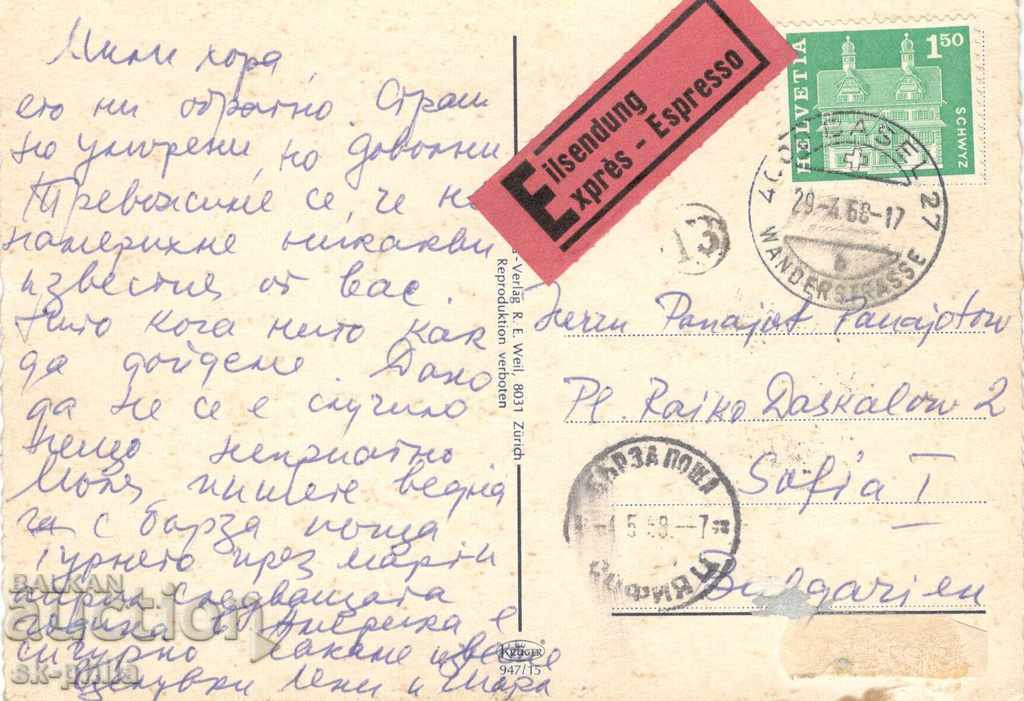 Мили хора,
ето ни обратно Страш
но уморени, но доволни
Тревожиме се, че не
намерихне никакви
известия от вас.
Нито кога нито как
да дойдене. Дано
да не се е случило
нещо неприятно
Моля, пишете ведна
га с бърза поща
Турнето през марти
април следващата
година в Америка е
сигурно
целувки Лени и
Eilsendung
Exprès - Espresso
HELVETIA
1 50
SCHWYZ
BASEL 27
29-4.68-17
b
WANDERSTRASSE
13
-Verlag R. E. Weil, 8031 Zürich
Reproduktion verboten
Herrn Panajot Panajotow
Pl. Raiko Daskalow 2
Sofia I
Bulgarien
БЪРЗА ПОЩА
СОФИЯ Ц
KRÜGER
947/15
BALKAN
auction
sk-phila